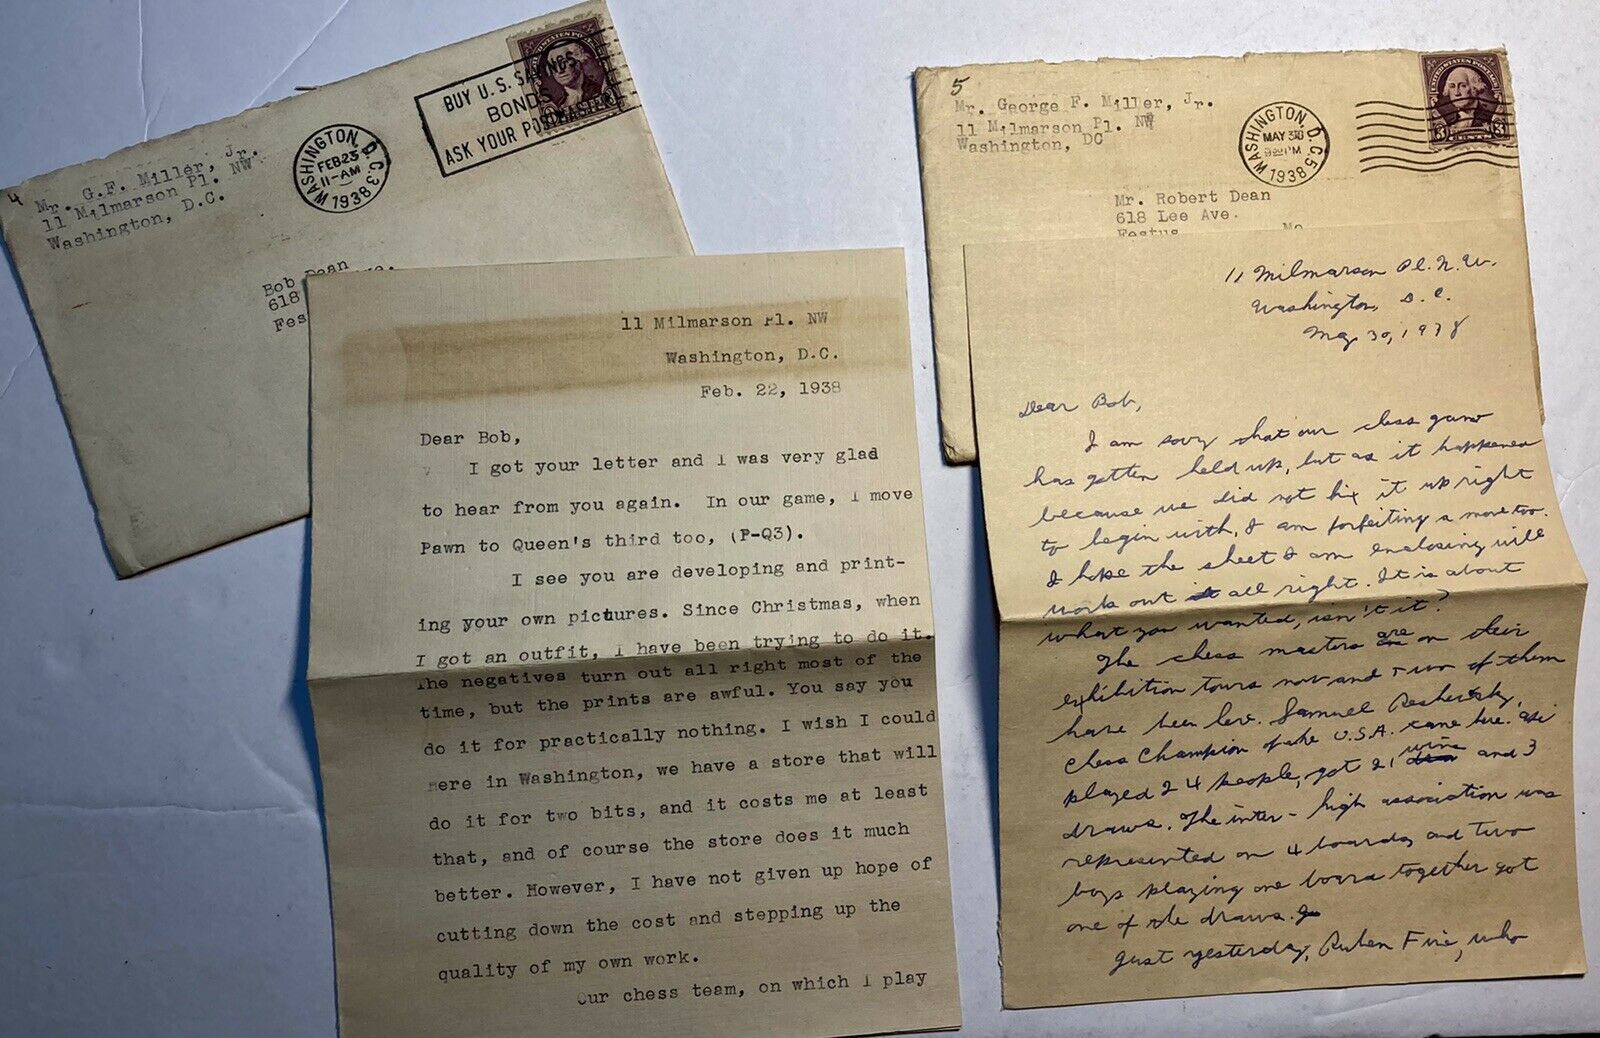 4
Mr. G.F. Miller, Jr.
11 Milmarson Pl. NW
Washington, D.C.
WASHINGTON, D.C. 3
FEB 23
11-AM
1938
BUY U.S. SAVINGS
BONDS
ASK YOUR POSTMASTER
UNITED STATES POSTAGE
Bob Dean
618
Fes
11 Milmarson Pl. NW
Washington, D.C.
Feb. 22, 1938
Dear Bob,
I got your letter and I was very glad
to hear from you again. In our game, I move
Pawn to Queen's third too, (P-Q3).
I see you are developing and print-
ing your own pictures. Since Christmas, when
I got an outfit, I have been trying to do it.
The negatives turn out all right most of the
time, but the prints are awful. You say you
do it for practically nothing. I wish I could
Here in Washington, we have a store that will
do it for two bits, and it costs me at least
that, and of course the store does it much
better. However, I have not given up hope of
cutting down the cost and stepping up the
quality of my own work.
Our chess team, on which I play
5
Mr. George F. Miller, Jr.
11 Milmarson Pl. NW
Washington, DC
WASHINGTON, D.C. 5
MAY 30
PM
1938
UNITED STATES POSTAGE
3 3
Mr. Robert Dean
618 Lee Ave.
Festus Mo
11 Milmarson Pl. N.W.
Washington, D.C.
May 30, 1938
Dear Bob,
I am sorry that our chess game
has gotten held up, but as it happened
because we did not fix it up right
to begin with, I am forfeiting a move too.
I hope the sheet I am enclosing will
work out all right. It is about
what you wanted, isn't it?
The chess masters are on their
exhibition tours now and two of them
have been here. Samuel Reshevsky,
Chess Champion of the U.S.A. came here. He
played 24 people, got 21 wins and 3
draws. The inter-high association was
represented on 4 boards, and two
boys playing one board together got
one of the draws.
Just yesterday, Ruben Fine, who